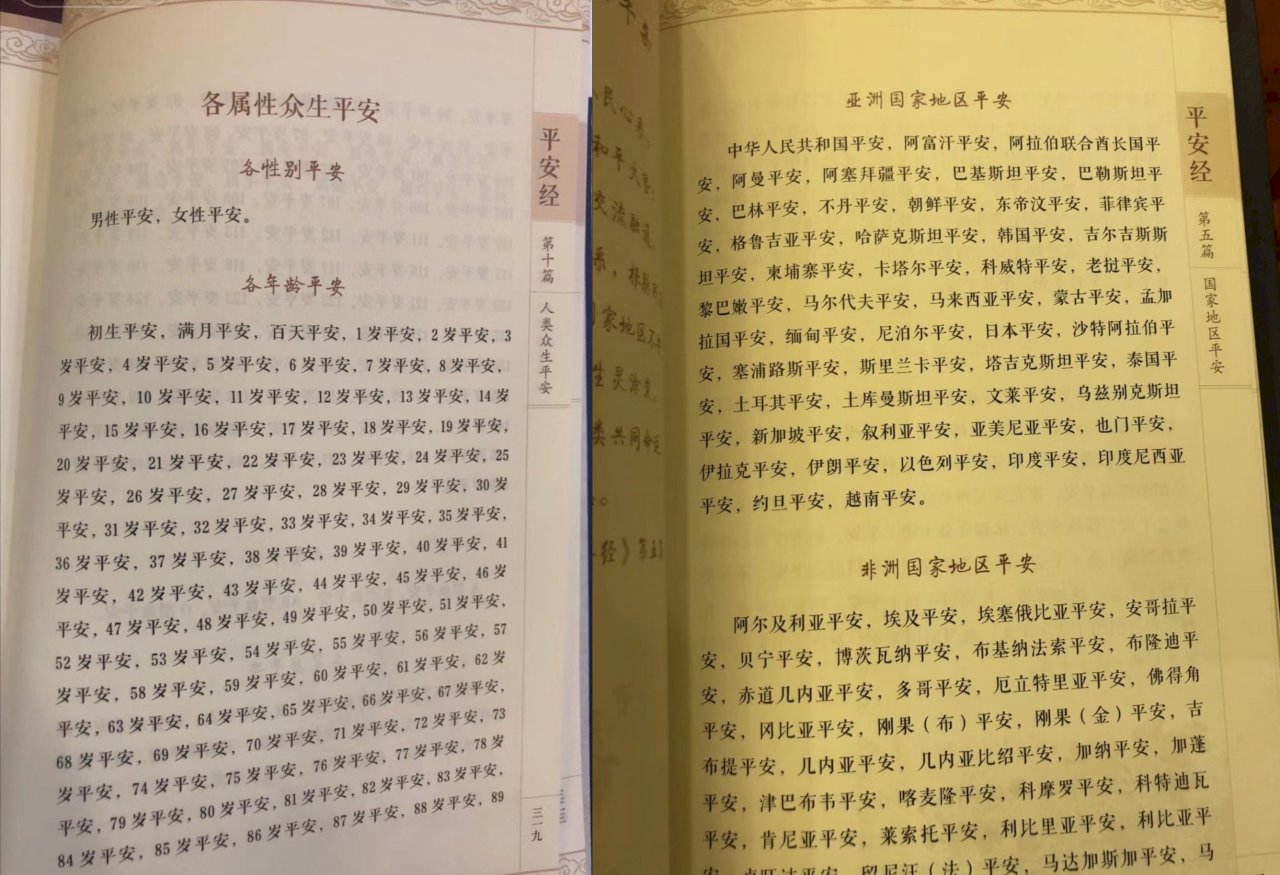 各属性众生平安
各性别平安
男性平安，女性平安。
各年龄平安
初生平安，满月平安，百天平安，1岁平安，2岁平安，3
岁平安，4岁平安，5岁平安，6岁平安，7岁平安，8岁平安，
9岁平安，10岁平安，11岁平安，12岁平安，13岁平安，14
岁平安，15岁平安，16岁平安，17岁平安，18岁平安，19岁平安，
20岁平安，21岁平安，22岁平安，23岁平安，24岁平安，25
岁平安，26岁平安，27岁平安，28岁平安，29岁平安，30岁
平安，31岁平安，32岁平安，33岁平安，34岁平安，35岁平安，
36岁平安，37岁平安，38岁平安，39岁平安，40岁平安，41
岁平安，42岁平安，43岁平安，44岁平安，45岁平安，46岁
平安，47岁平安，48岁平安，49岁平安，50岁平安，51岁平安，
52岁平安，53岁平安，54岁平安，55岁平安，56岁平安，57
岁平安，58岁平安，59岁平安，60岁平安，61岁平安，62岁
平安，63岁平安，64岁平安，65岁平安，66岁平安，67岁平安，
68岁平安，69岁平安，70岁平安，71岁平安，72岁平安，73
岁平安，74岁平安，75岁平安，76岁平安，77岁平安，78岁
平安，79岁平安，80岁平安，81岁平安，82岁平安，83岁平安，
84岁平安，85岁平安，86岁平安，87岁平安，88岁平安，89
平安经
第十篇
人类众生平安
三一九
亚洲国家地区平安
中华人民共和国平安，阿富汗平安，阿拉伯联合酋长国平
安，阿曼平安，阿塞拜疆平安，巴基斯坦平安，巴勒斯坦平
安，巴林平安，不丹平安，朝鲜平安，东帝汶平安，菲律宾平
安，格鲁吉亚平安，哈萨克斯坦平安，韩国平安，吉尔吉斯斯
坦平安，柬埔寨平安，卡塔尔平安，科威特平安，老挝平安，
黎巴嫩平安，马尔代夫平安，马来西亚平安，蒙古平安，孟加
拉国平安，缅甸平安，尼泊尔平安，日本平安，沙特阿拉伯平
安，塞浦路斯平安，斯里兰卡平安，塔吉克斯坦平安，泰国平
安，土耳其平安，土库曼斯坦平安，文莱平安，乌兹别克斯坦
平安，新加坡平安，叙利亚平安，亚美尼亚平安，也门平安，
伊拉克平安，伊朗平安，以色列平安，印度平安，印度尼西亚
平安，约旦平安，越南平安。
非洲国家地区平安
阿尔及利亚平安，埃及平安，埃塞俄比亚平安，安哥拉平
安，贝宁平安，博茨瓦纳平安，布基纳法索平安，布隆迪平
安，赤道几内亚平安，多哥平安，厄立特里亚平安，佛得角
平安，冈比亚平安，刚果（布）平安，刚果（金）平安，吉
布提平安，几内亚平安，几内亚比绍平安，加纳平安，加蓬
平安，津巴布韦平安，喀麦隆平安，科摩罗平安，科特迪瓦
平安，肯尼亚平安，莱索托平安，利比里亚平安，利比亚平
安，卢旺达平安，留尼汪（法）平安，马达加斯加平安，马
平安经
第五篇
国家地区平安